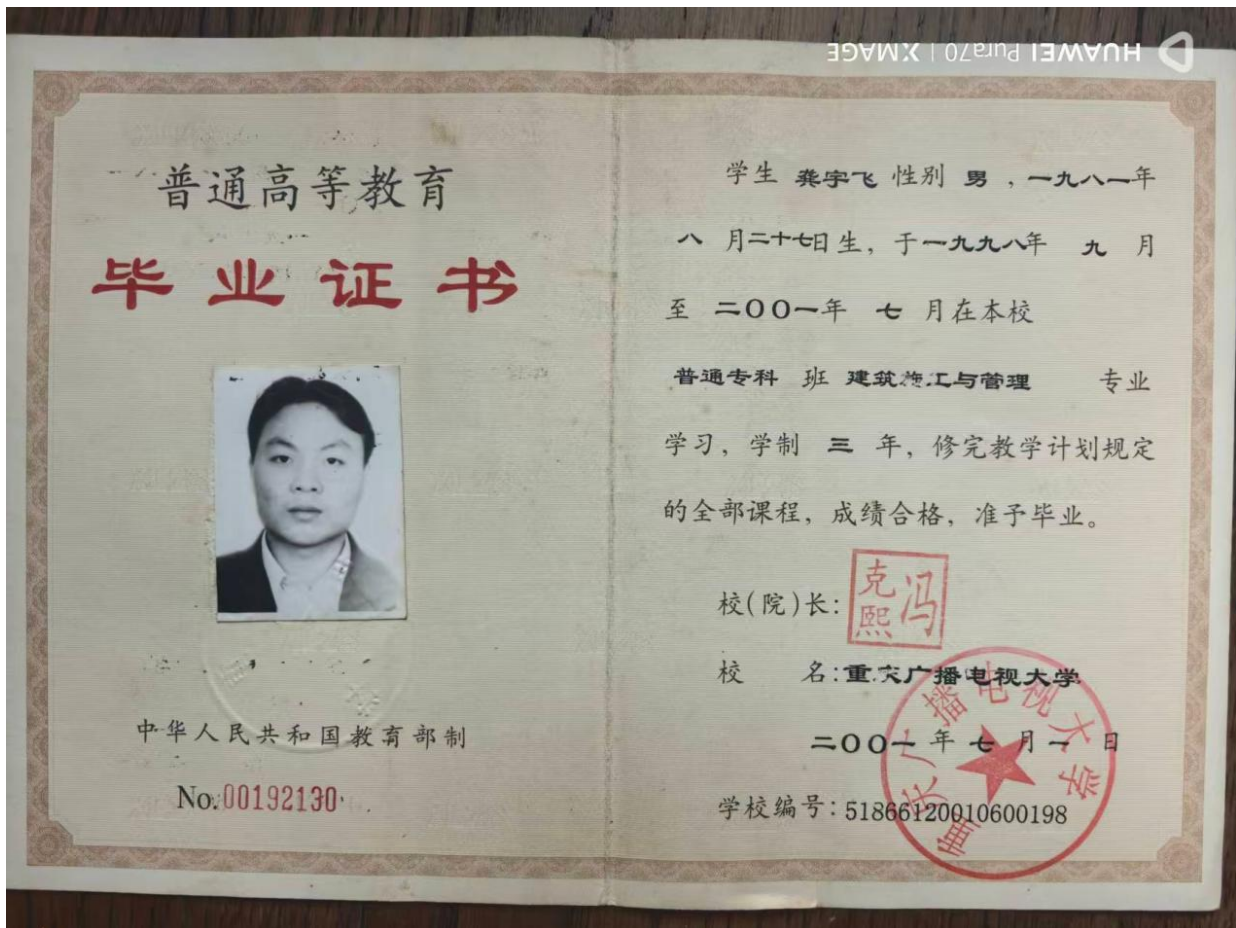 HUAWEI Pura70 | XMAGE
普通高等教育
毕业证书
中华人民共和国教育部制
No.00192130
学生 龚宇飞 性别 男 ,一九八一年
八 月二十七日生, 于一九九八年 九 月
至 二〇〇一年 七 月在本校
普通专科 班 建筑施工与管理 专业
学习, 学制 三 年, 修完教学计划规定
的全部课程, 成绩合格, 准予毕业。
校(院)长:
冯克熙
校 名:重庆广播电视大学
二〇〇一 年 七 月 一 日
学校编号: 51866120010600198
重庆广播电视大学